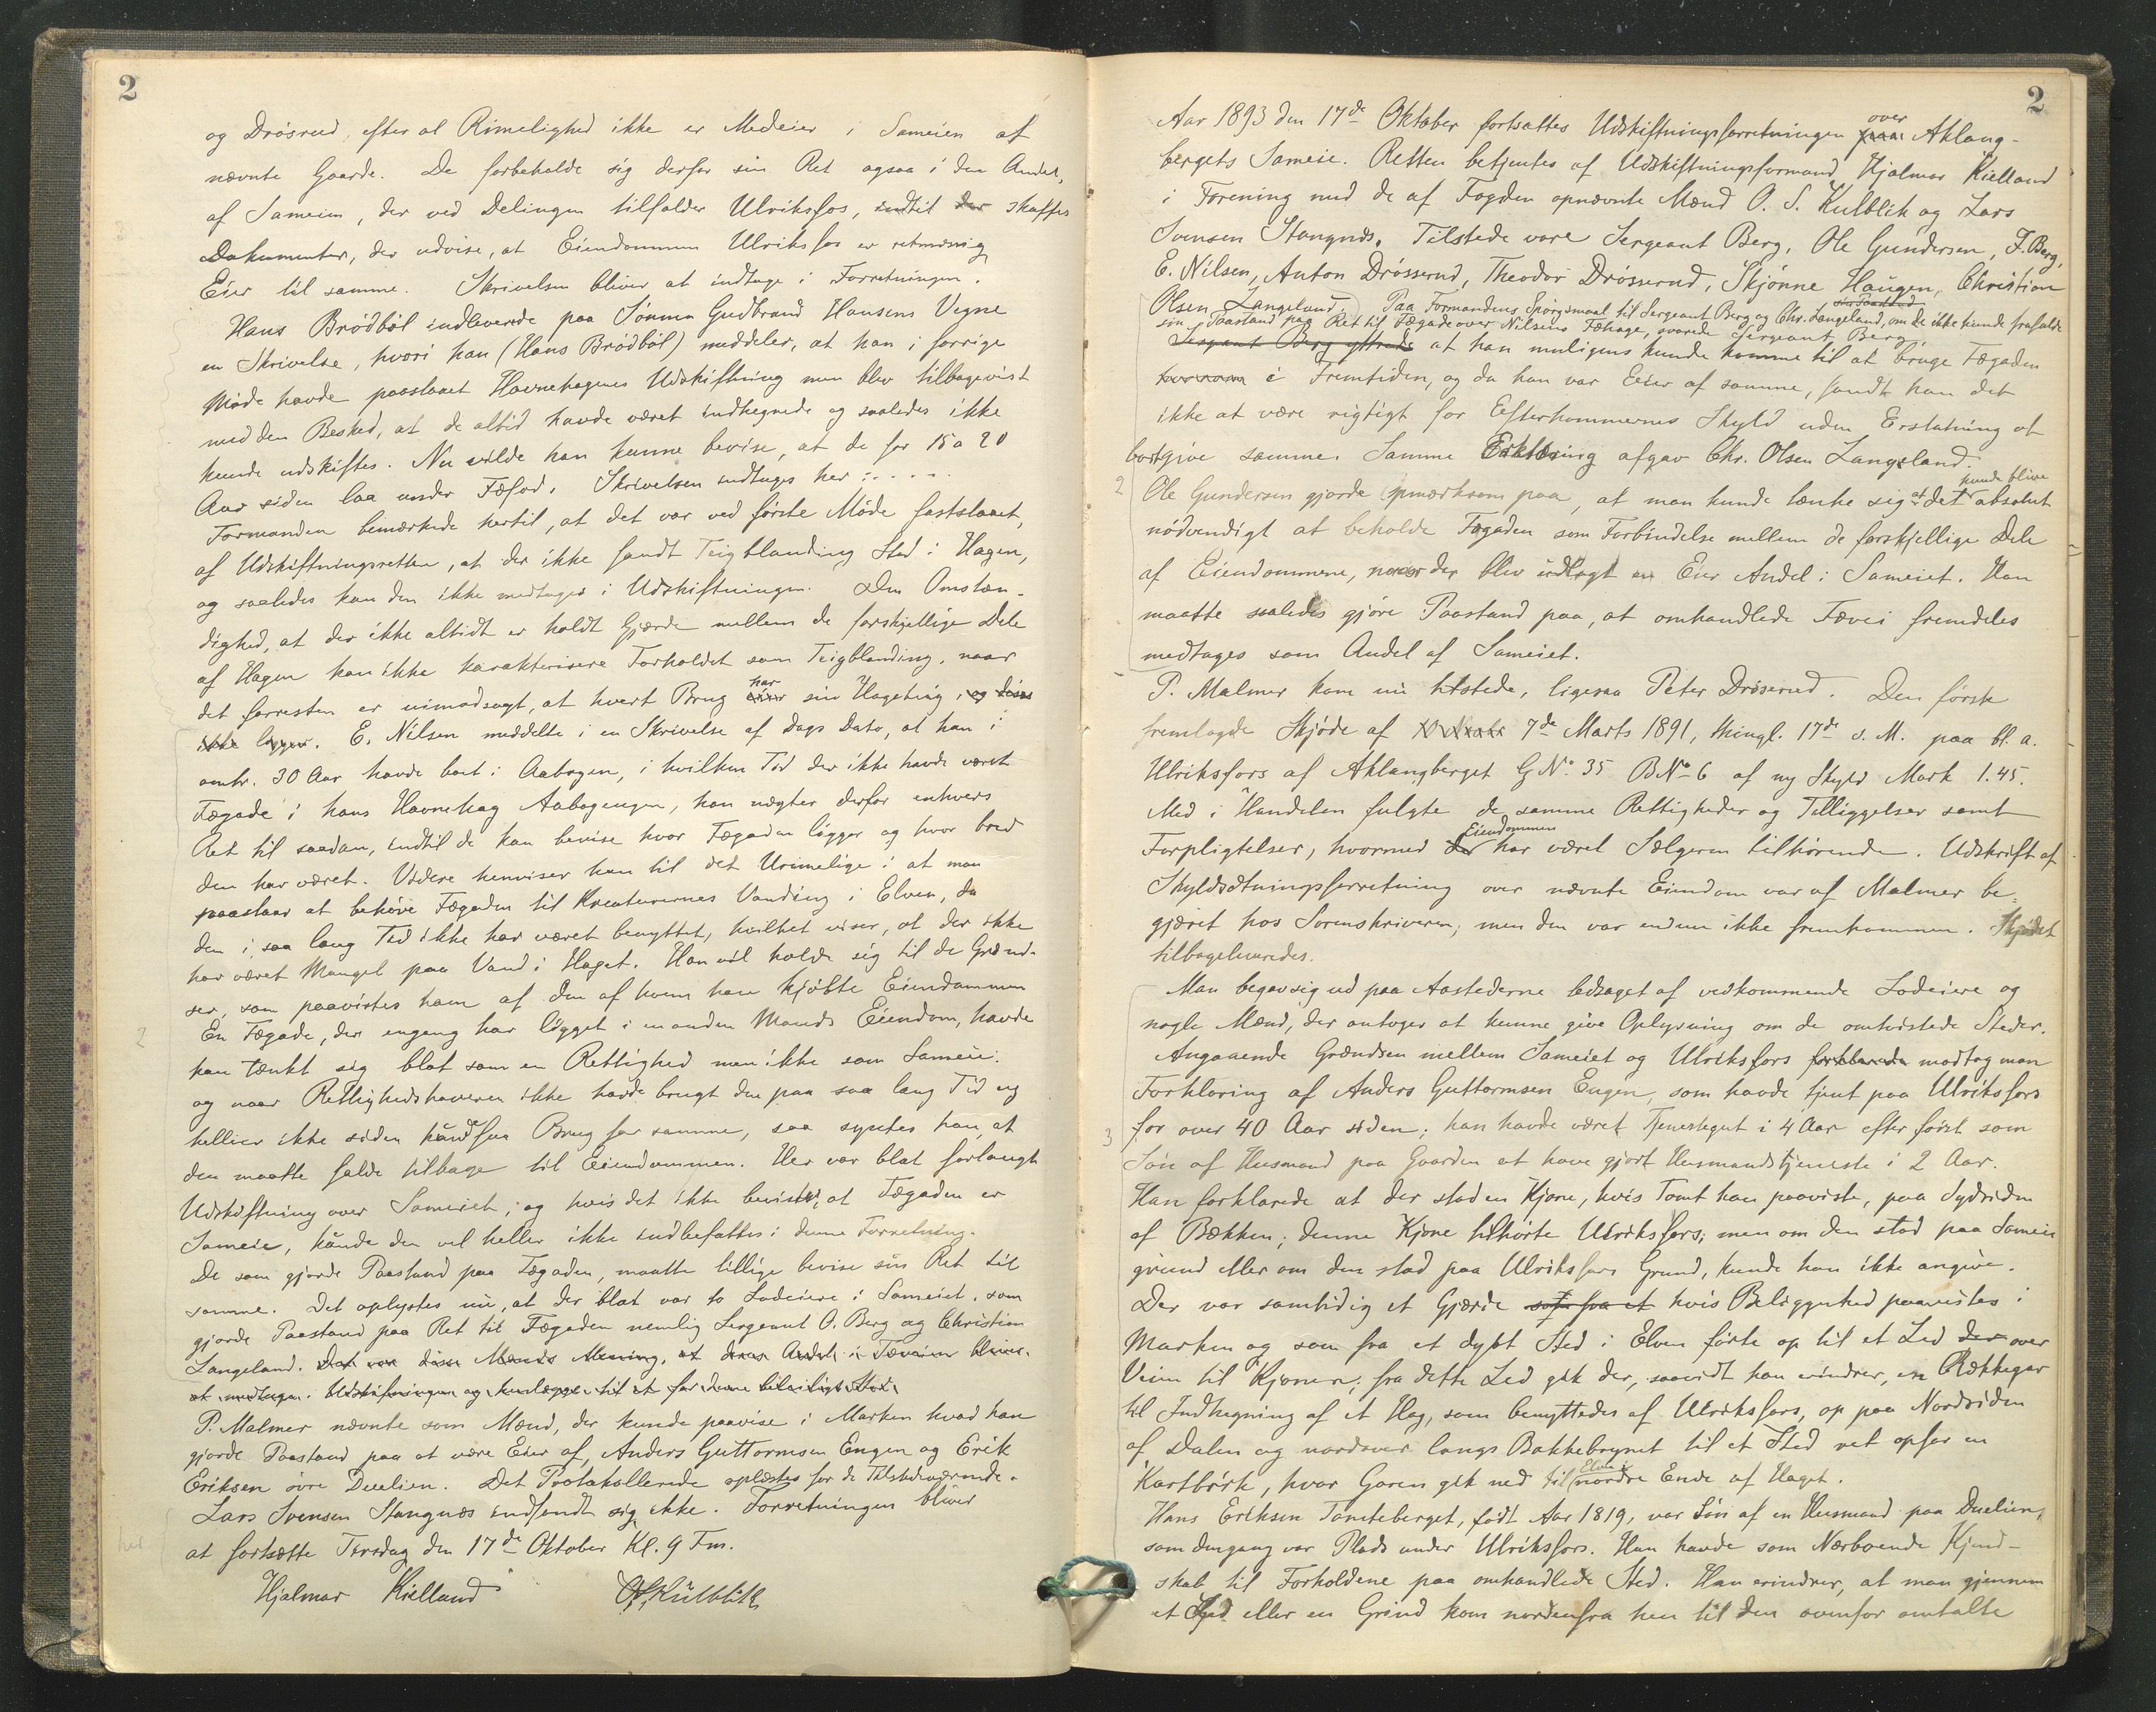 2
og Drösrud, efter al Rimelighed ikke er Medeier i Sameien af
nævnte Gaarde. De forbeholde sig derfor sin Ret ogsaa i den Andel,
af Sameien, der ved Delingen tilfalder Ulriksfos, indtil der skaffes
Dokumenter, der udvise, at Eiendommen Ulriksfos er retmæssig
Eier til samme. Skrivelsen bliver at indtage i Forretningen.
Hans Brödböl indleverede paa Sönnen Gudbrand Hansens Vegne
en Skrivelse, hvori han (Hans Brödböl) meddeler, at han i forrige
Möde havde paastaaet Havnehagenes Udskiftning men blev tilbagevist
med den Besked, at de altid havde været indhegnede og saaledes ikke
kunde udskiftes. Nu vilde han kunne bevise, at de for 15 a 20
Aar siden laa under Fæfod. Skrivelsen indtages her : . . . .
Formanden bemærkede hertil, at det var ved förste Möde fastslaaet,
af Udskiftningsretten, at der ikke fandt Teigblanding Sted i Hagen,
og saaledes kan den ikke medtages i Udskiftningen. Den Omstæn-
dighed, at der ikke altidt er holdt Gjærde mellem de forskjellige Dele
af Hagen kan ikke karakterisere Forholdet som Teigblanding, naar
det forresten er uimodsagt, at hvert Brug eier har sin Hageteig, og disse
ikke ligger. E. Nilsen meddelte i en Skrivelse af Dags Dato, at han i
omtr. 30 Aar havde boet i Aabogen, i hvilken Tid der ikke havde været
Fægade i hans Havnehag Aabogengen, han nægter derfor enhvers
Ret til saadan, indtil de kan bevise hvor Fægaden ligger og hvor bred
den har været. Videre henviser han til det Urimelige i at man
paastaar at behöve Fægaden til Kreaturernes Vanding i Elven, da
den i saa lang Tid ikke har været benyttet, hvilket viser, at der ikke
har været Mangel paa Vand i Haget. Han vil holde sig til de Grænd-
ser, som paavistes ham af den af hvem han kjöbte Eiendommen
2
En Fægade, der engang har ligget i en anden Mands Eiendom, havde
han tænkt sig blot som en Rettighed men ikke som Sameie.
og naar Rettighedshaveren ikke havde brugt den paa saa lang Tid og
heller ikke siden kunde faa Brug for samme, saa syntes han, at
den maatte falde tilbage til Eiendommen. Her var blot forlangt
Udskiftning over Sameiet; og hvis det ikke bevistes, at Fægaden er
Sameie, kunde den vel heller ikke indbefattes i denne Forretning.
De som gjorde Paastand paa Fægaden, maatte tillige bevise sin Ret til
samme. Det oplystes nu, at der blot var to Lodeiere i Sameiet, som
gjorde Paastand paa Ret til Fægaden nemlig Sergeant O. Berg og Christian
Langeland. Det var disse Mænds Mening, at deres Andel i Fæveien bliver
at medtage i Udskiftningen og henlægges til et for denne beleiligt Sted.
P. Malmer nævnte som Mænd, der kunde paavise i Marken hvad han
gjorde Paastand paa at være Eier af, Anders Guttormsen Engen og Erik
Eriksen övre Duelien. Det Protokollerede oplæstes for de Tilstedeværende.
Lars Svensen Stangnæs indfandt sig ikke. Forretningen bliver
at fortsætte Tirsdag den 17de Oktober Kl. 9 Fm.
Hjalmar Kielland OS Kulblik
2
Aar 1893 den 17de Oktober fortsattes Udskiftningsforretningen paa over Aklang-
bergets Sameie. Retten betjentes af Udskiftningsformand Hjalmar Kielland
i Forening med de af Fogden opnævnte Mænd O. S. Kulblik og Lars
Svensen Stangnæs. Tilstede vare Sergeant Berg, Ole Gundersen, J. Berg,
E. Nilsen, Anton Drösserud, Theodor Drösserud, Skjönne Haugen, Christian
Olsen Langeland. Paa Formandens Spörgsmaal til Sergeant Berg og Chr. Langeland, om de ikke kunde frafalde
sin Paastand paa Ret til Fægade over Nilsens Fæhage, svarede Sergeant Berg,
Sergeant Berg yttrede at han muligens kunde komme til at bruge Fægaden
i Fremtiden, og da han var Eier af samme, fandt han det
ikke at være rigtigt for Efterkommernes Skyld uden Erstatning at
bortgive samme. Samme Erklæring afgav Chr. Olsen Langeland.
2
Ole Gundersen gjorde opmærksom paa, at man kunde tænke sig at det kunde blive absolut
nödvendigt at beholde Fægaden som Forbindelse mellem de forskjellige Dele
af Eiendommene, naar der blev indlagt en Eier Andel i Sameiet. Han
maatte saaledes gjöre Paastand paa, at omhandlede Fævei fremdeles
medtages som Andel af Sameiet.
P. Malmer kom nu tilstede, ligesaa Peter Dröserud. Den förste
fremlagde Skjöde af 7de Marts 1891, thingl. 17de s. M. paa bl. a.
Ulriksfors af Aklangberget G No. 35 B No 6 af ny Skyld Mark 1.45.
Med i Handelen fulgte de samme Rettigheder og Tilliggelser samt
Forpligtelser, hvormed der Eiendommen har været Sælgeren tilhörende. Udskrift af
Skyldsætningsforretning over nævnte Eiendom var af Malmer be-
gjæret hos Sorenskriveren; men den var endnu ikke fremkommen. Skjödet
tilbageleveredes.
Man begav sig ud paa Aastederne ledsaget af vedkommende Lodeiere og
nogle Mænd, der antoges at kunne give Oplysning om de omtvistede Steder.
Angaaende Grændsen mellem Sameiet og Ulriksfors forklarede modtog man
Forklaring af Anders Guttormsen Engen, som havde tjent paa Ulriksfors
3
for over 40 Aar siden; han havde været Tjenestegut i 4 Aar efter först som
Sön af Husmand paa Gaarden at have gjort Husmandstjeneste i 2 Aar.
Han forklarede at der stod en Kjone, hvis Tomt han paaviste, paa Sydsiden
af Bækken; denne Kjone tilhörte Ulriksfors; men om den stod paa Sameie
grund eller om den stod paa Ulriksfors Grund, kunde han ikke angive.
Der var samtidig et Gjærde som fra et hvis Beliggenhed paavistes i
Marken og som fra et dybt Sted i Elven förte op til et Led der over
Veien til Kjonen; fra dette Led gik der, saavidt han erindrer, en Rækkegar
til Indhegning af et Hag, som benyttedes af Ulriksfors, op paa Nordsiden
af Dalen og nordover langs Bakkebrynet til et Sted ret opfor en
Kartbörk, hvor Garen gik ned til Elven i nordre Ende af Haget.
Hans Eriksen Tomteberget, födt Aar 1819, var Sön af en Husmand paa Duelien,
som dengang var Plads under Ulriksfors. Han havde som Nærboende Kjend-
skab til Forholdene paa omhandlede Sted. Han erindrer, at man gjennem
et Led eller en Grind kom nordenfra hen til den ovenfor omtalte